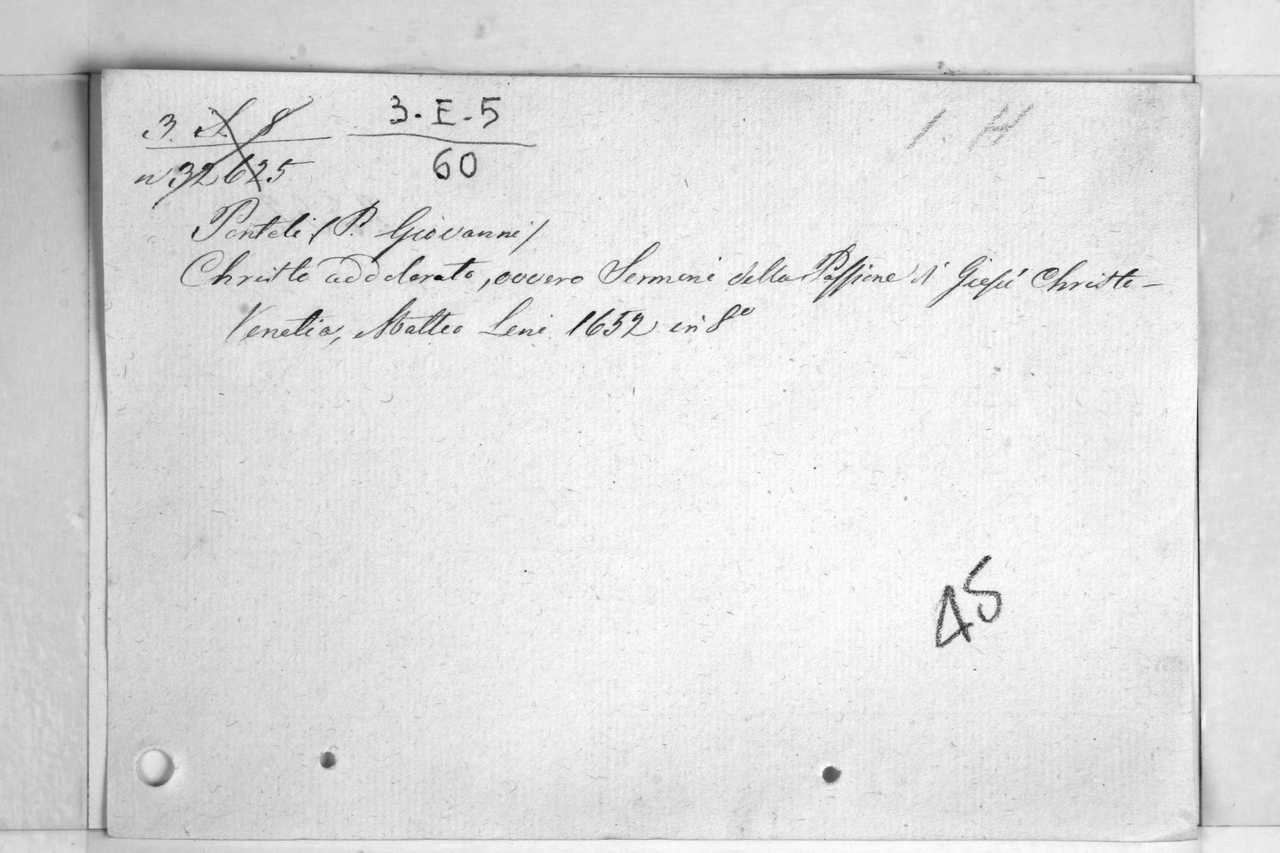 3. L. 8 3-E-5 1. H
n 32625 60
Pontoli (P. Giovanni)
Christo addolorato, ovvero Sermoni della Passione di Giesú Christo -
Venetia, Matteo Leni 1652 in 8º
45